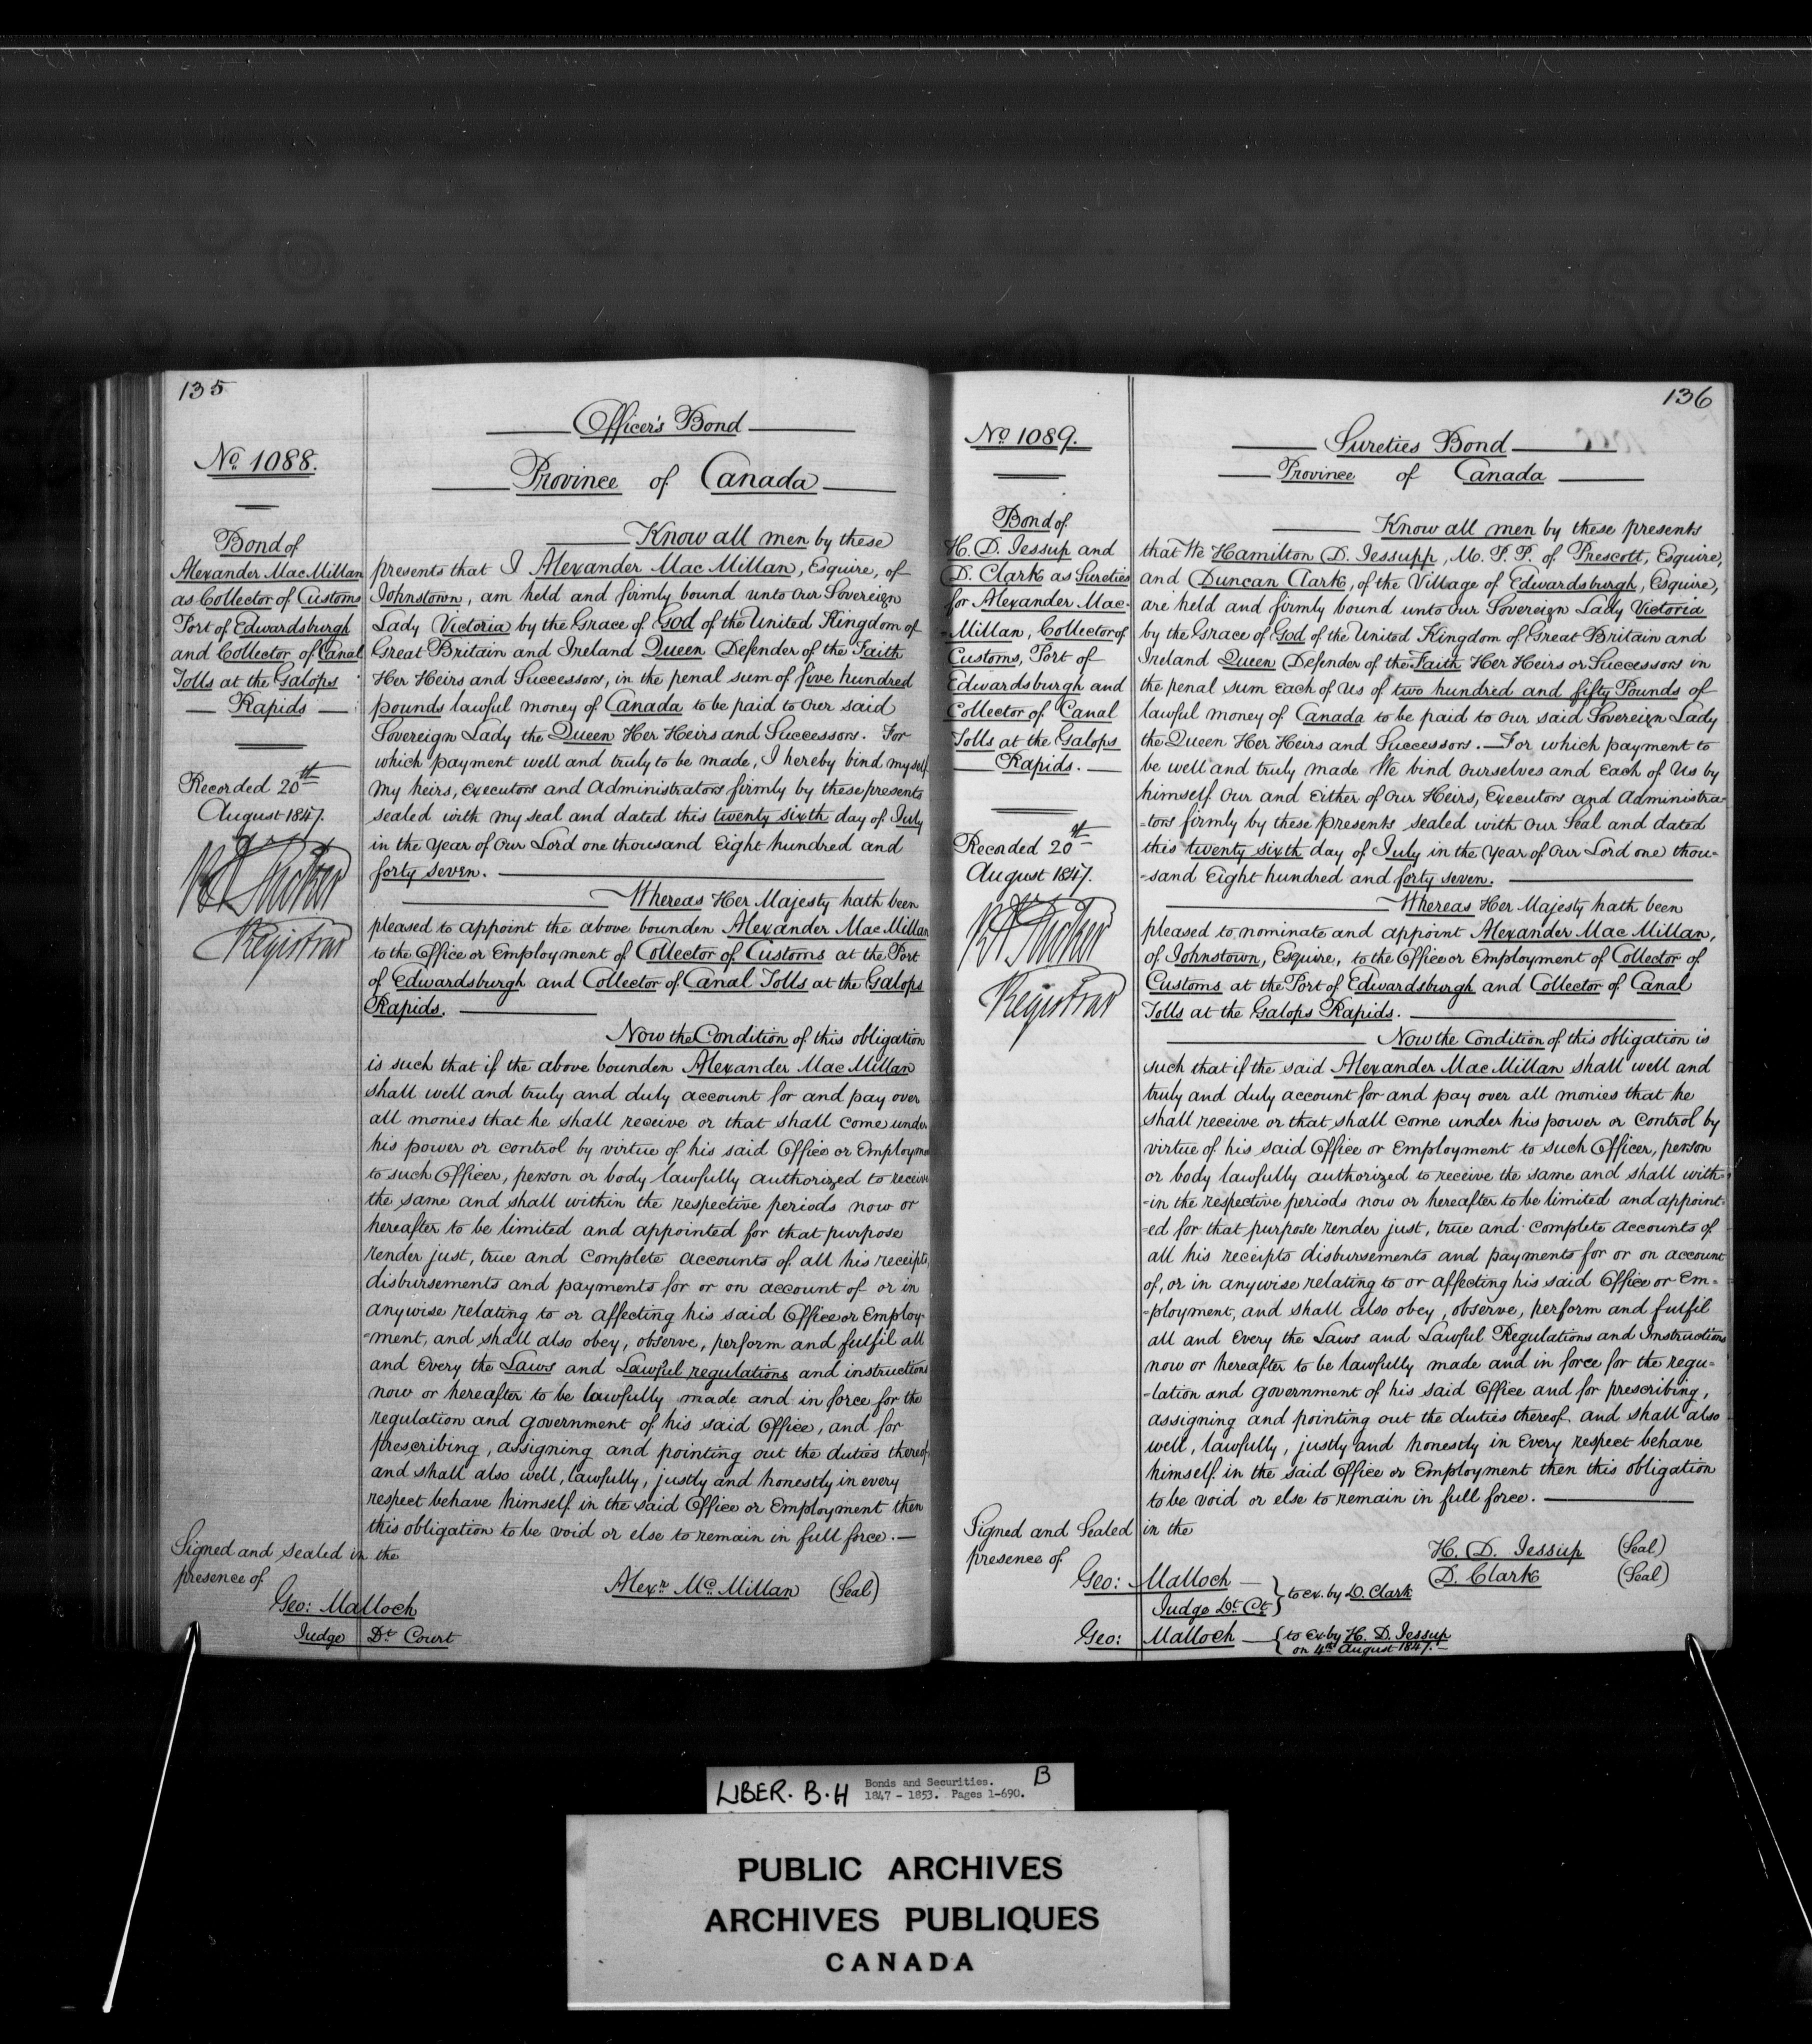 135
Officer's Bond
Province of Canada
No 1088.
Bond of
Alexander MacMillan
as Collector of Customs
Port of Edwardsburgh
and Collector of Canal
Tolls at the Galops
Rapids
Recorded 20th
August 1847.
Registrar
Know all men by these
presents that I Alexander MacMillan, Esquire, of
Johnstown, am held and firmly bound unto Our Sovereign
Lady Victoria by the Grace of God of the United Kingdom of
Great Britain and Ireland Queen Defender of the Faith
Her Heirs and Successors, in the penal sum of five hundred
pounds lawful money of Canada to be paid to Our said
Sovereign Lady the Queen Her Heirs and Successors. For
which payment well and truly to be made, I hereby bind myself
my heirs, executors and administrators firmly by these presents
sealed with my seal and dated this twenty sixth day of July
in the Year of Our Lord one thousand Eight hundred and
forty seven.
Whereas Her Majesty hath been
pleased to appoint the above bounden Alexander MacMillan
to the Office or Employment of Collector of Customs at the Port
of Edwardsburgh and Collector of Canal Tolls at the Galops
Rapids.
Now the Condition of this obligation
is such that if the above bounden Alexander MacMillan
shall well and truly and duly account for and pay over
all monies that he shall receive or that shall come under
his power or control by virtue of his said Office or Employmen
to such Officer, person or body lawfully authorized to receive
the same and shall within the respective periods now or
hereafter to be limited and appointed for that purpose
render just, true and complete accounts of all his receipts,
disbursements and payments for or on account of or in
anywise relating to or affecting his said Office or Employ-
=ment, and shall also obey, observe, perform and fulfil all
and every the Laws and Lawful regulations and instructions
now or hereafter to be lawfully made and in force for the
regulation and government of his said Office, and for
prescribing, assigning and pointing out the duties thereof
and shall also well, lawfully, justly and honestly in every
respect behave himself in the said Office or Employment then
this obligation to be void or else to remain in full force.
Signed and sealed in the
presence of
Geo: Malloch
Judge Dt Court
Alexr McMillan (Seal)
136
Sureties Bond
Province of Canada
No 1089.
Bond of
H. D. Jessup and
D. Clark as Sureties
for Alexander Mac-
-Millan, Collector of
Customs, Port of
Edwardsburgh and
Collector of Canal
Tolls at the Galops
Rapids.
Recorded 20th
August 1847.
Registrar
Know all men by these presents
that We Hamilton D. Jessupp, M. P. P. of Prescott, Esquire,
and Duncan Clark, of the Village of Edwardsburgh, Esquire,
are held and firmly bound unto Our Sovereign Lady Victoria
by the Grace of God of the United Kingdom of Great Britain and
Ireland Queen Defender of the Faith Her Heirs or Successors in
the penal sum each of Us of two hundred and fifty Pounds of
lawful money of Canada to be paid to Our said Sovereign Lady
the Queen Her Heirs and Successors. For which payment to
be well and truly made We bind Ourselves and Each of Us by
himself Our and Either of Our Heirs, Executors and Administra-
-tors firmly by these presents sealed with Our Seal and dated
this twenty sixth day of July in the Year of Our Lord one thou-
-sand Eight hundred and forty seven.
Whereas Her Majesty hath been
pleased to nominate and appoint Alexander Mac Millan,
of Johnstown, Esquire, to the Office or Employment of Collector of
Customs at the Port of Edwardsburgh and Collector of Canal
Tolls at the Galops Rapids.
Now the Condition of this obligation is
such that if the said Alexander Mac Millan shall well and
truly and duly account for and pay over all monies that he
shall receive or that shall come under his power or control by
virtue of his said Office or Employment to such Officer, person
or body lawfully authorized to receive the same and shall with-
-in the respective periods now or hereafter to be limited and appoint-
-ed for that purpose render just, true and complete accounts of
all his receipts disbursements and payments for or on account
of, or in anywise relating to or affecting his said Office or Em=
=ployment, and shall also obey, observe, perform and fulfil
all and every the Laws and Lawful Regulations and Instructions
now or hereafter to be lawfully made and in force for the regu=
-lation and government of his said Office and for prescribing,
assigning and pointing out the duties thereof and shall also
well, lawfully, justly and honestly in every respect behave
himself in the said Office or Employment then this obligation
to be void or else to remain in full force.
Signed and Sealed in the
presence of
H. D. Jessup (Seal)
D. Clark (Seal)
Geo: Malloch
Judge Dt Ct } to ex. by D. Clark
Geo: Malloch { to ex. by H. D. Jessup
on 4th August 1847.
LIBER. B.H Bonds and Securities. B
1847 - 1853. Pages 1-690.
PUBLIC ARCHIVES
ARCHIVES PUBLIQUES
CANADA